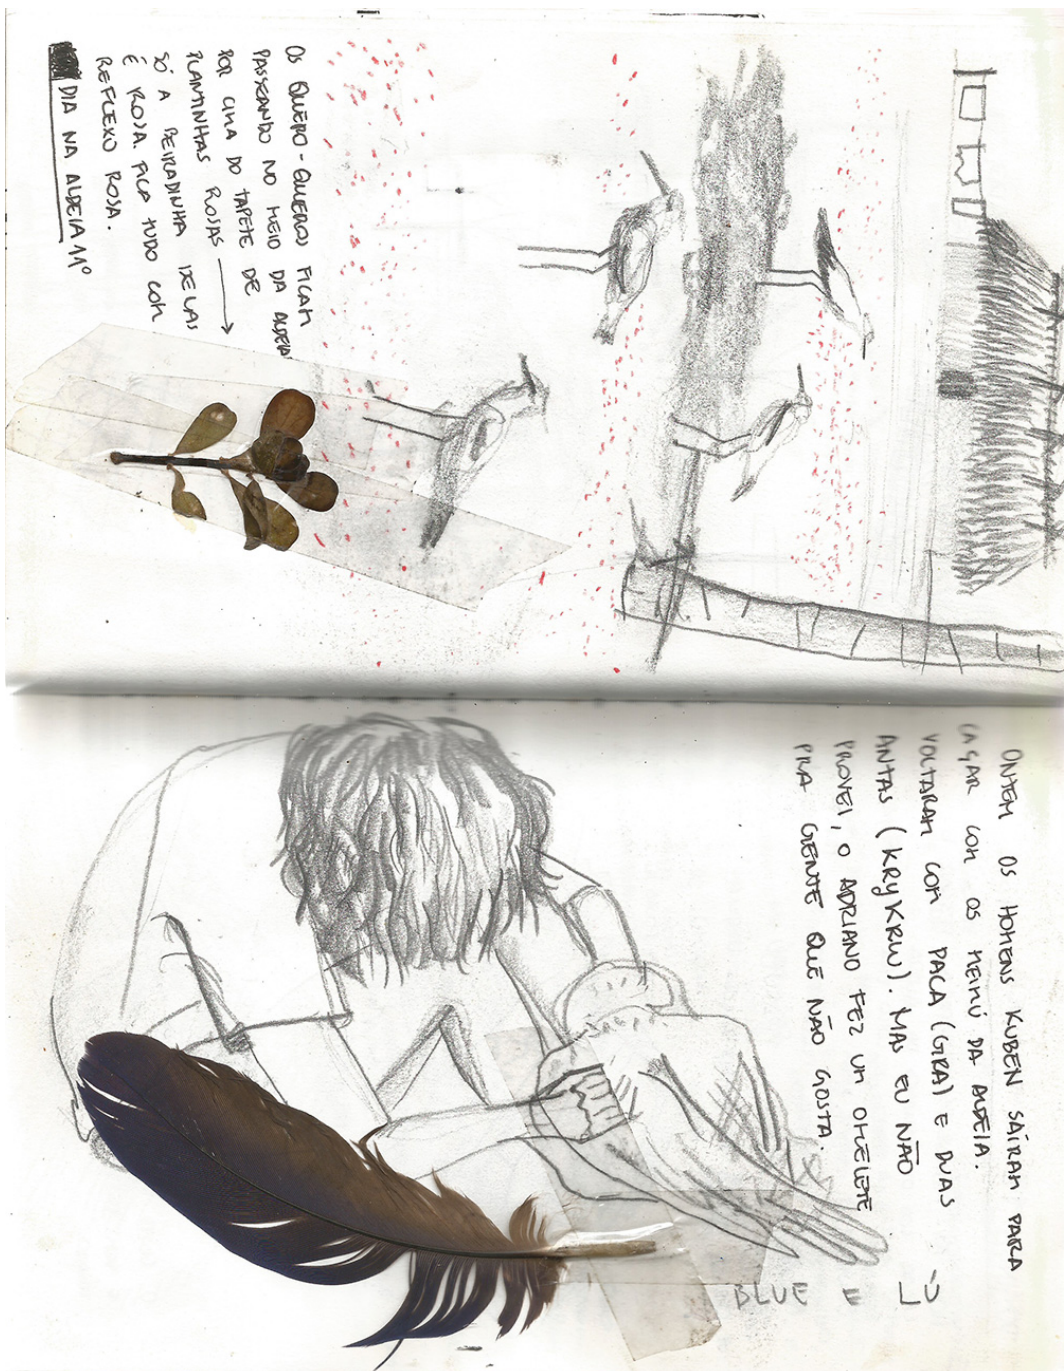 OS QUERO-QUEROS FICAM
PASSEANDO NO MEIO DA ALDEIA
POR CIMA DO TAPETE DE
PLANTINHAS ROSAS →
SÓ A BEIRADINHA DELAS
É ROSA. FICA TUDO COM
REFLEXO ROSA.
DIA NA ALDEIA 11º
ONTEM OS HOMENS KUBEN SAÍRAM PARA
CAÇAR COM OS MEINÚ DA ALDEIA.
VOLTARAM COM PACA (GRA) E DUAS
ANTAS (KRYKRW). MAS EU NÃO
PROVEI, O ADRIANO FEZ UM OMELETE
PRA GENTE QUE NÃO GOSTA.
BLUE E LÚ